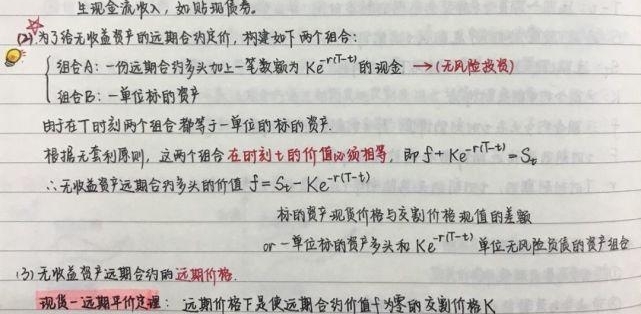 生现金流收入，如贴现债券。
(2) 为了给无收益资产的远期合约定价，构建如下两个组合：
组合A：一份远期合约多头加上一笔数额为 Ke^-r(T-t) 的现金 →(无风险投资)
组合B：一单位标的资产
由于在T时刻两个组合都等于一单位的标的资产.
根据无套利原则，这两个组合在时刻t的价值必须相等，即 f + Ke^-r(T-t) = St
∴无收益资产远期合约多头的价值 f = St - Ke^-r(T-t)
标的资产现货价格与交割价格现值的差额
or 一单位标的资产多头和 Ke^-r(T-t) 单位无风险负债的资产组合
(3) 无收益资产远期合约的远期价格.
现货-远期平价定理：远期价格F是使远期合约价值f为零的交割价格K